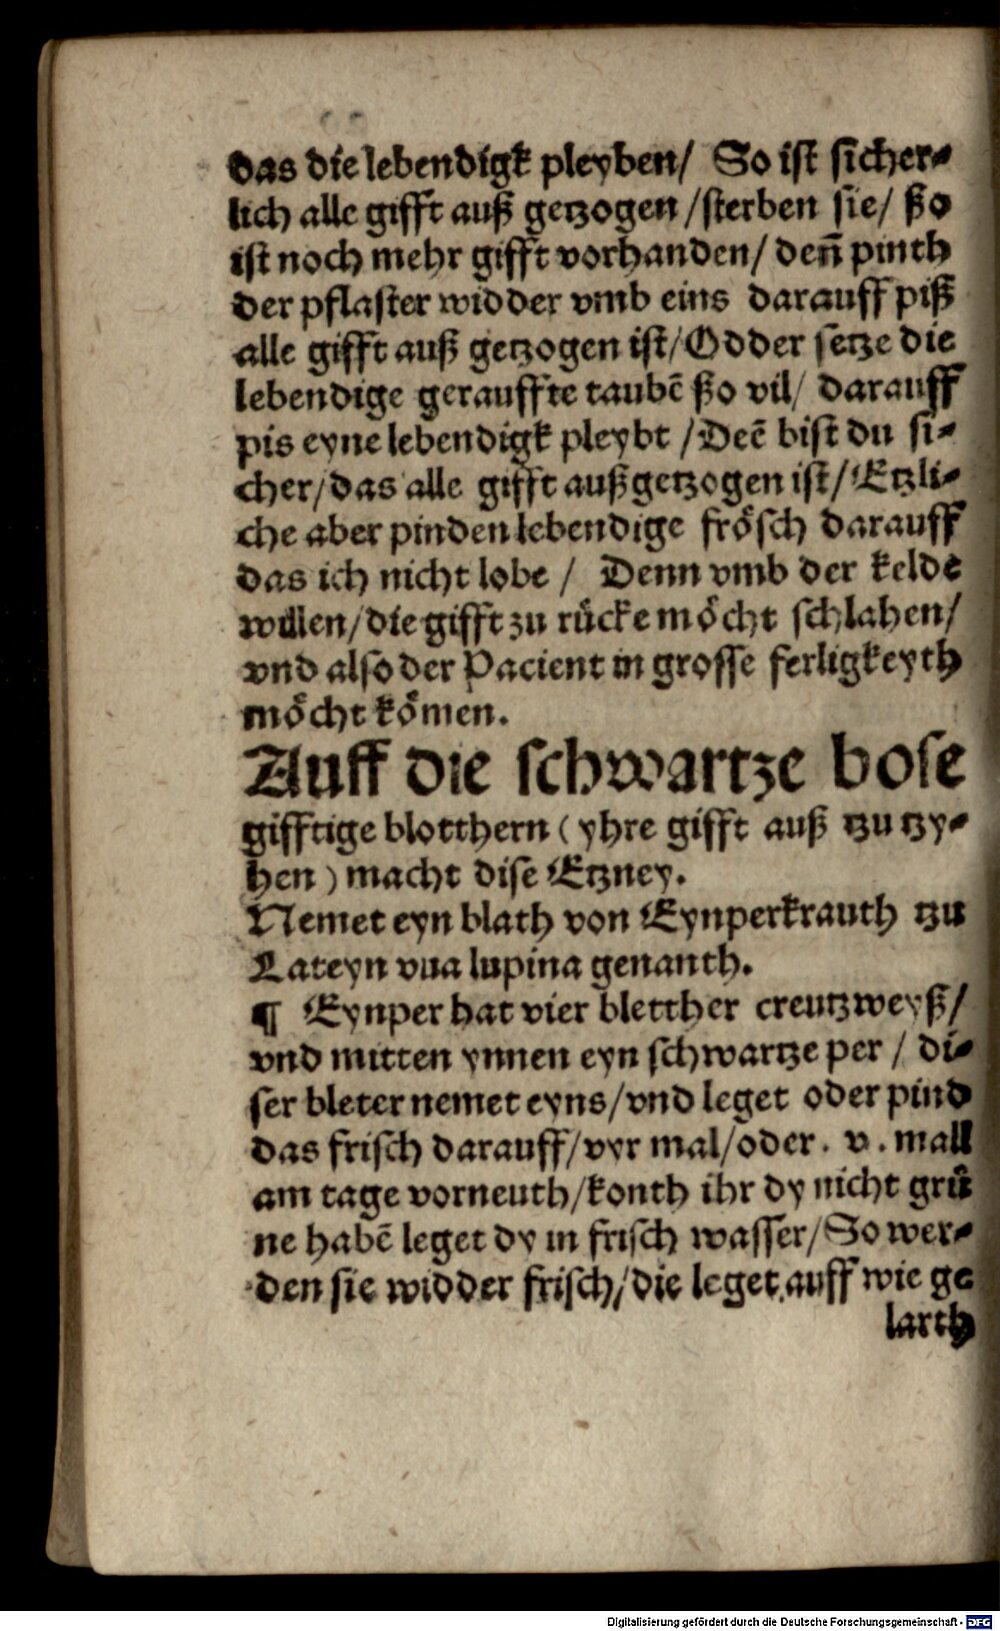 das die lebendigk pleyben/ So ist sicher⸗
lich alle gifft auß getzogen /sterben sie/ ßo
ist noch mehr gifft vorhanden/ den̄ pinth
der pflaster widder vmb eins darauff piß
alle gifft auß getzogen ist/Odder setze die
lebendige gerauffte taubē ßo vil/ darauff
pis eyne lebendigk pleybt /Deē bist du si⸗
cher/das alle gifft außgetzogen ist/Etzli⸗
che aber pinden lebendige frösch darauff
das ich nicht lobe / Denn vmb der kelde
willen/die gifft zu rücke möcht schlahen/
vnd also der Pacient in grosse ferligkeyth
möcht kömen.
Auff die schwartze bose
gifftige blotthern ( yhre gifft auß tzu tzy⸗
hen ) macht dise Etzney.
Nemet eyn blath von Eynperkrauth tzu
Lateyn vua lupina genanth.
¶ Eynper hat vier bletther creutzweyß/
vnd mitten ynnen eyn schwartze per / di⸗
ser bleter nemet eyns/vnd leget oder pind
das frisch darauff/vyr mal/oder. v. mall
am tage vorneuth/konth ihr dy nicht grü
ne habē leget dy in frisch wasser/So wer⸗
den sie widder frisch/die leget auff wie ge
larth
Digitalisierung gefördert durch die Deutsche Forschungsgemeinschaft - DFG